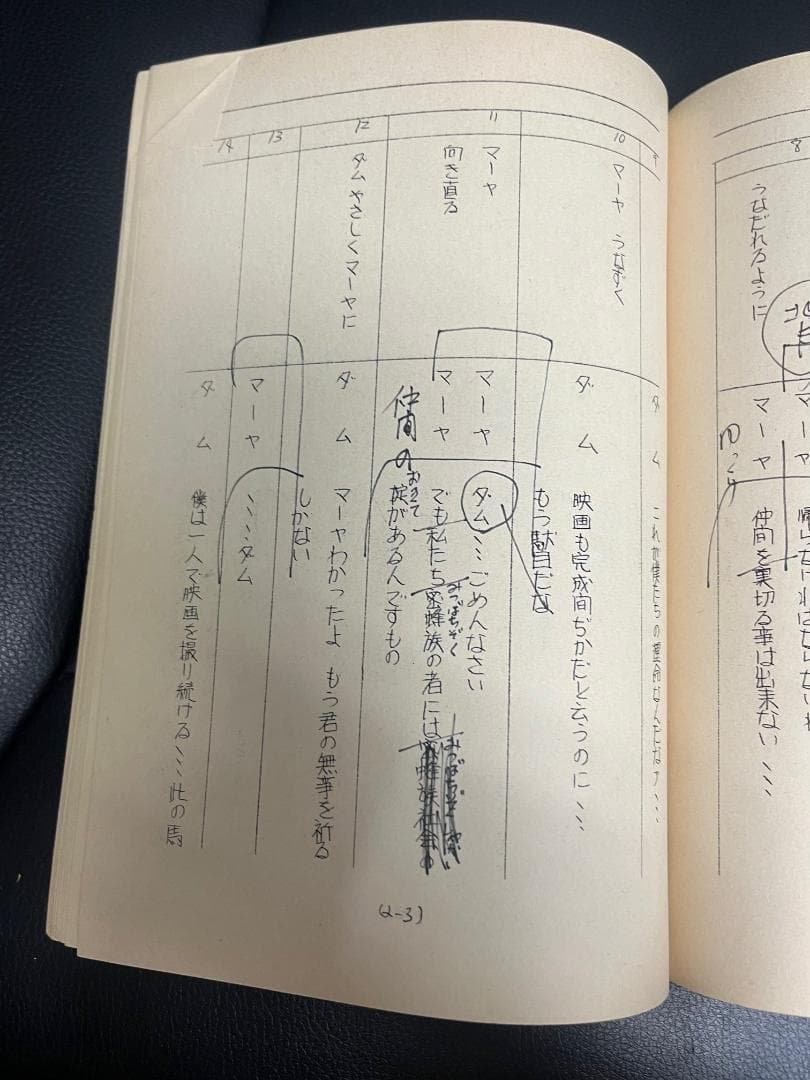 8
うなだれるように
マーヤ
マーヤ
ゆっくり
仲間を裏切る事は出来ない、、、
9
ダム
これが僕たちの運命なんだなア、、、
10
マーヤ うなずく
ダム
映画も完成間ぢかだと云うのに、、、
もう駄目だな
11
マーヤ
向き直る
マーヤ
ダム、、、ごめんなさい
マーヤ
でも私たち蜜蜂族の者には蜜蜂族社会の
みつばちぞく
みつばちぞくしゃかい
仲間の
おきて
掟があるんですもの
12
ダムやさしくマーヤに
ダム
マーヤわかったよ もう君の無事を祈る
しかない
13
マーヤ
、、、ダム
14
ダム
僕は一人で映画を撮り続ける、、、此の馬
(2-3)